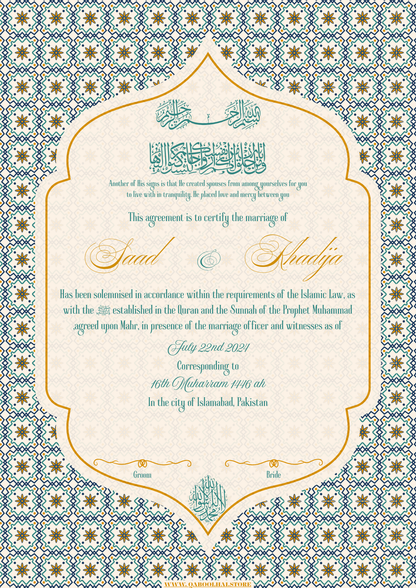 بسم الله الرحمن الرحيم
ومن آياته أن خلق لكم من أنفسكم أزواجا لتسكنوا إليها
Another of His signs is that He created spouses from among yourselves for you
to live with in tranquility. He placed love and mercy between you
This agreement is to certify the marriage of
Saad & Khadija
Has been solemnised in accordance within the requirements of the Islamic Law, as
with the ﷺ established in the Quran and the Sunnah of the Prophet Muhammad
,agreed upon Mahr, in presence of the marriage officer and witnesses as of
July 22nd 2024
Corresponding to
16th Muharram 1446 ah
In the city of Islamabad, Pakistan
Groom Bride
WWW.QABOOLHAI.STORE